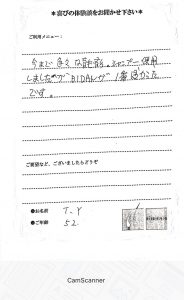 ＊喜びの体験談をお聞かせ下さい＊
ご利用メニュー：
今まで色々な
シャンプー使用
しましたが BIDAN が 1番良かった
です。
ご要望など、ございましたらどうぞ
●お名前 T.Y
●ご年齢 52
CamScanner